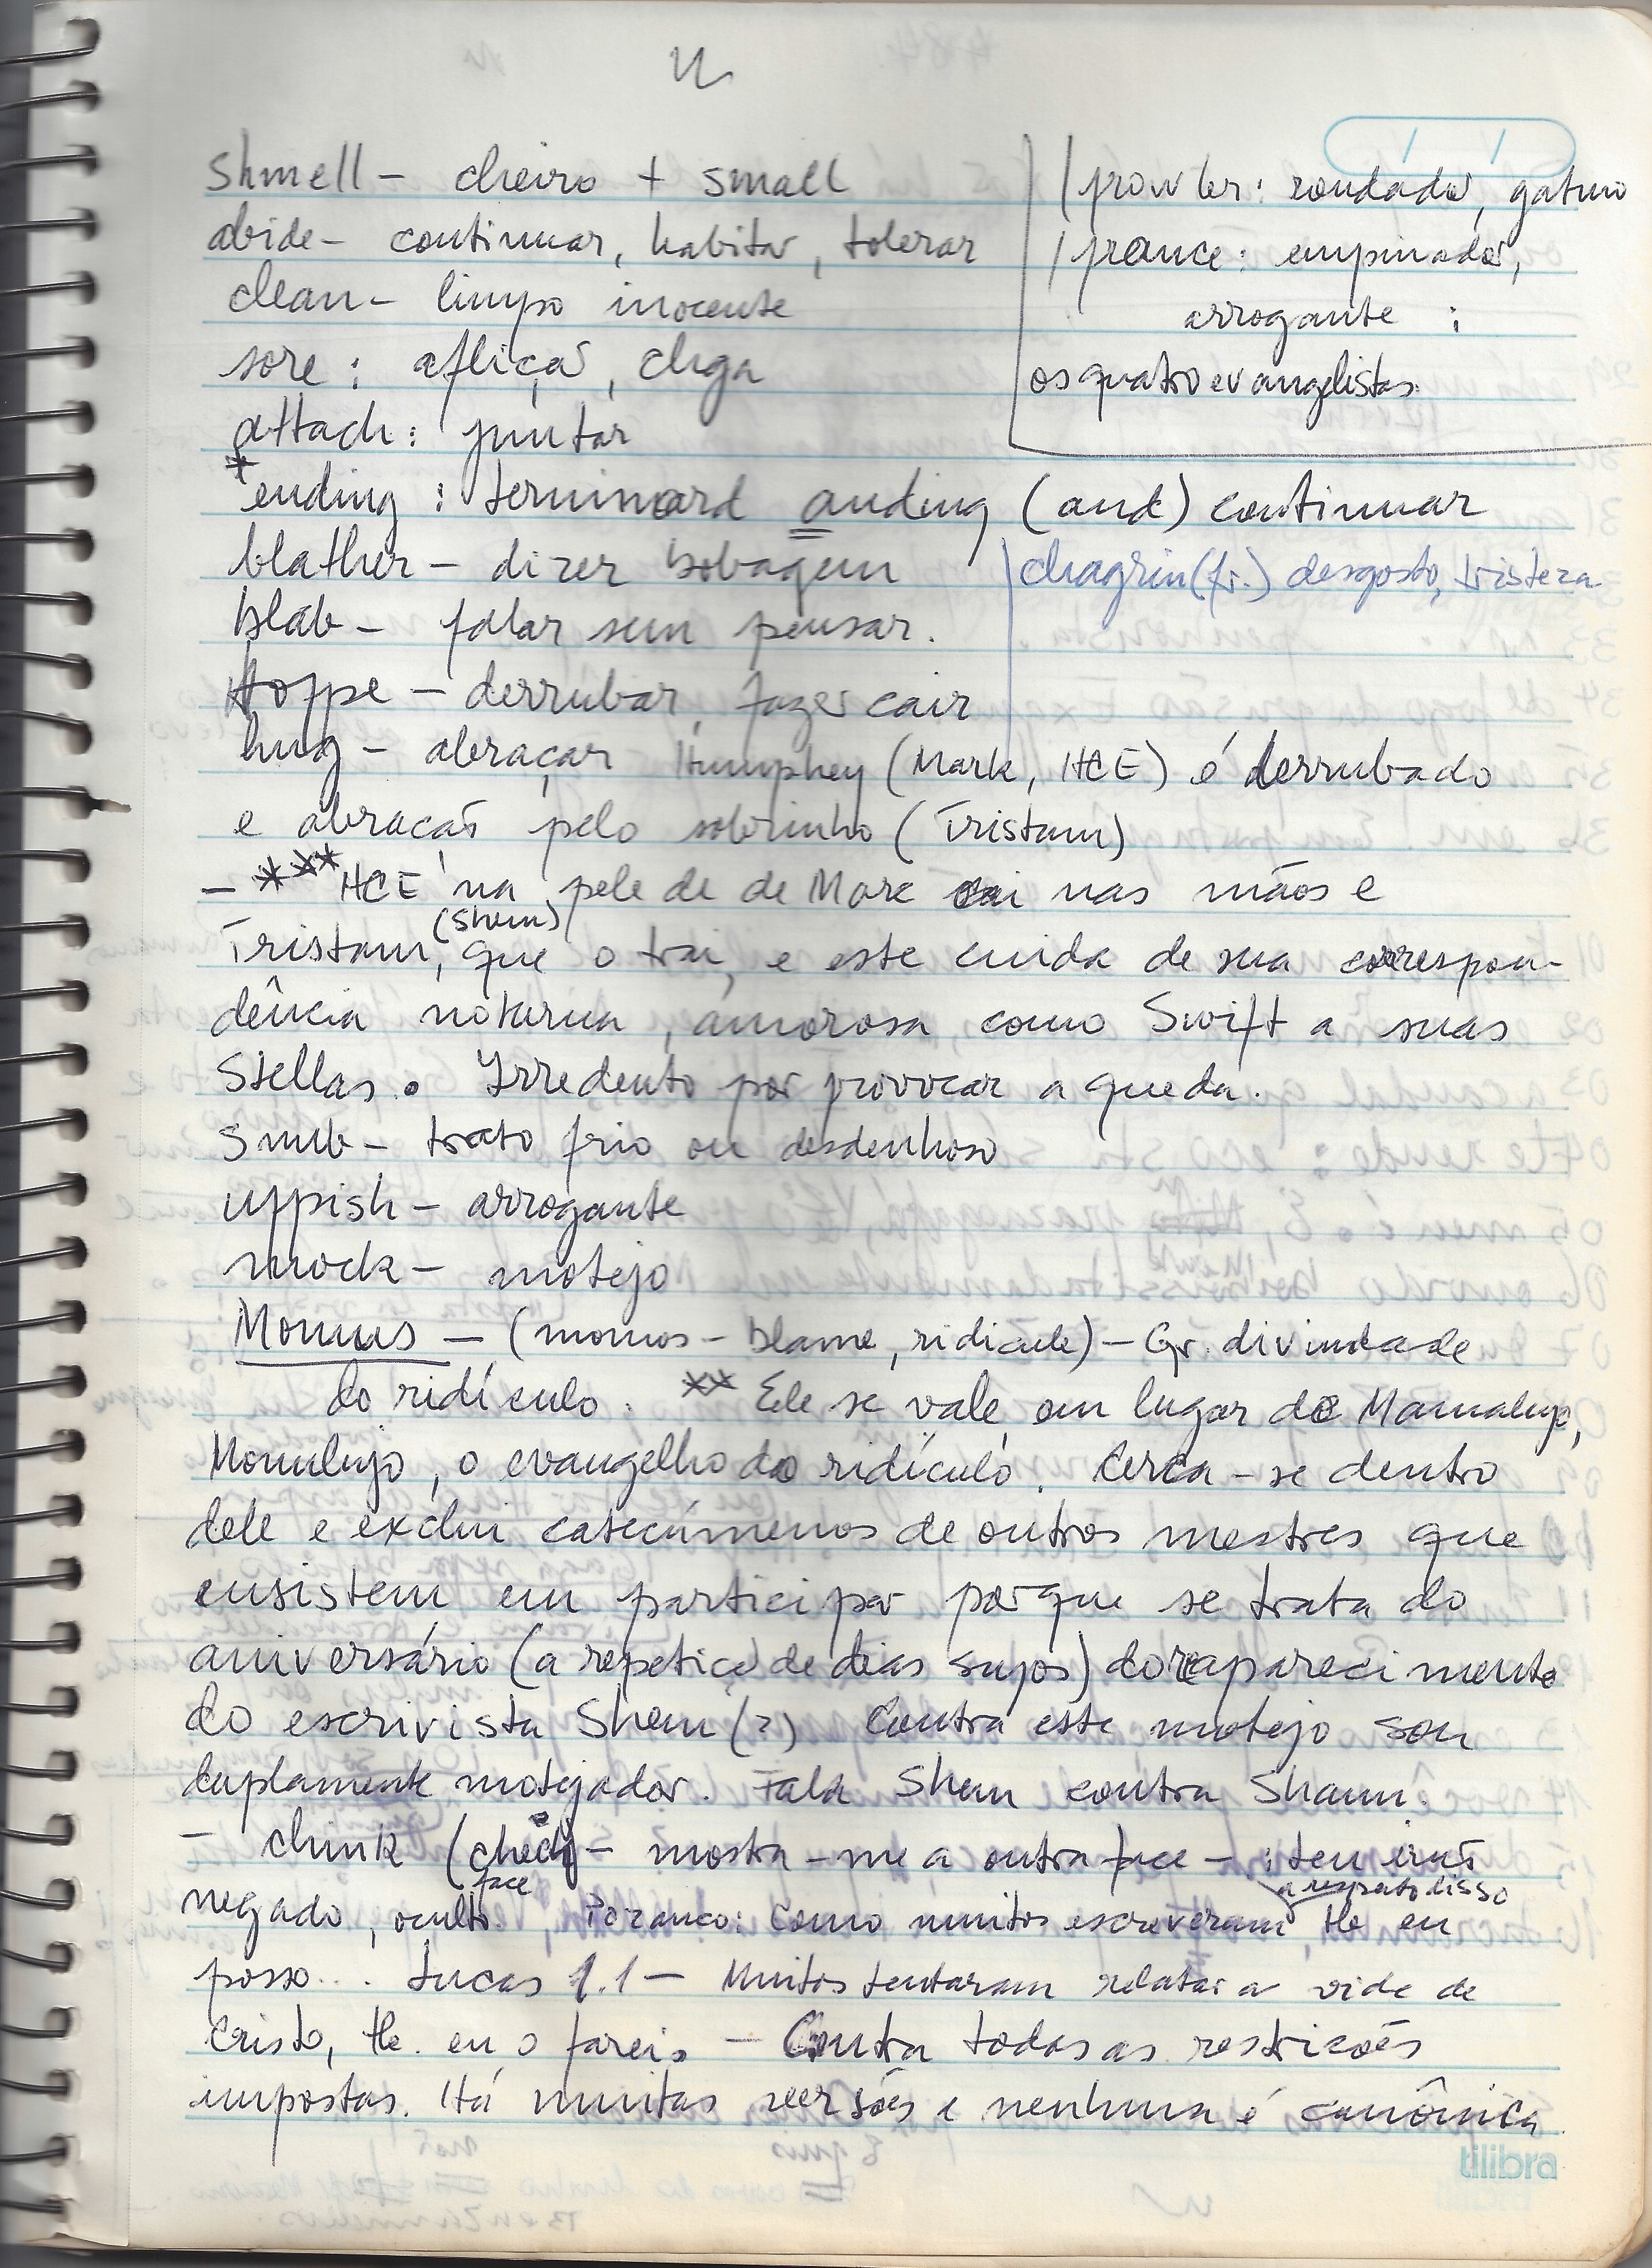 shmell – cheiro + small
abide – continuar, habitar, tolerar
clean – limpo inocente
sore : aflição, chga
attach : juntar
prowler : rondador, gatuno
prance : empinador,
arrogante :
os quatro evangelistas
* ending : terminar anding (and) continuar
blather – dizer bobagem
chagrin (fr.) desgosto, tristeza
blab – falar sem pensar.
toppe – derrubar, fazer cair
hug – abraçar Humphey (Mark, HCE) é derrubado
e abraçado pelo sobrinho (Tristam)
– *** HCE na pele de de Mark cai nas mãos e
(Shem)
Tristam, que o trai, e este cuida de sua correspon-
dência noturna, amorosa, como Swift a suas
Stellas. Irredento por provocar a queda.
Snub – trato frio ou desdenhoso
uppish – arrogante
mock – motejo
Momus – (momos – blame, ridicule) – Gr. divindade
do ridículo. ** Ele se vale, em lugar de Mamalujo,
Momulujo, o evangelho do ridículo. Cerca-se dentro
dele e exclui catecúmenos de outros mestres que
ensistem em participar porque se trata do
aniversário (a repetição de dias sujos) do reaparecimento
do escrivista Shem (?) Contra este motejo sou
duplamente motejador. Fala Shem contra Shaun.
– chink (cheek – mostra-me a outra face – : teu irmão
face
a respeito disso
negado, oculto. Por anco: Como muitos escreveram tb eu
posso... Lucas 1.1 – Muitos tentaram relatar a vida de
Cristo, tb. eu o farei. – Contra todas as restrições
impostas. Há muitas versões e nenhuma é canônica
tilibra